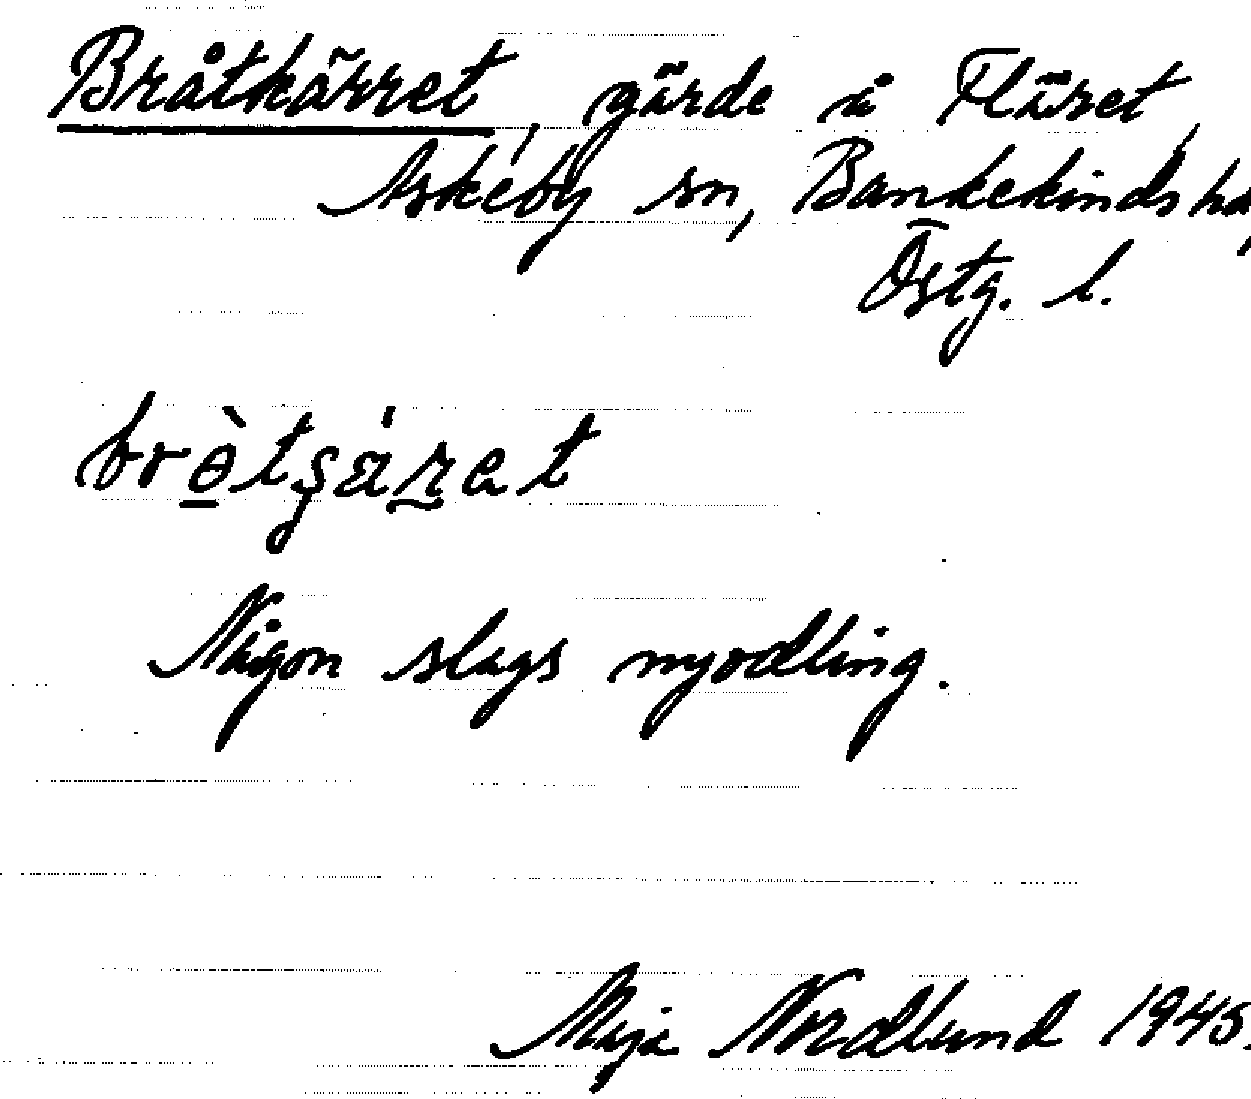 Bråtkärret, gärde å Fläret,
Askeby sn, Bankekinds hd,
Östg. l.
Någon slags nyodling.
Maja Nordlund 1945.